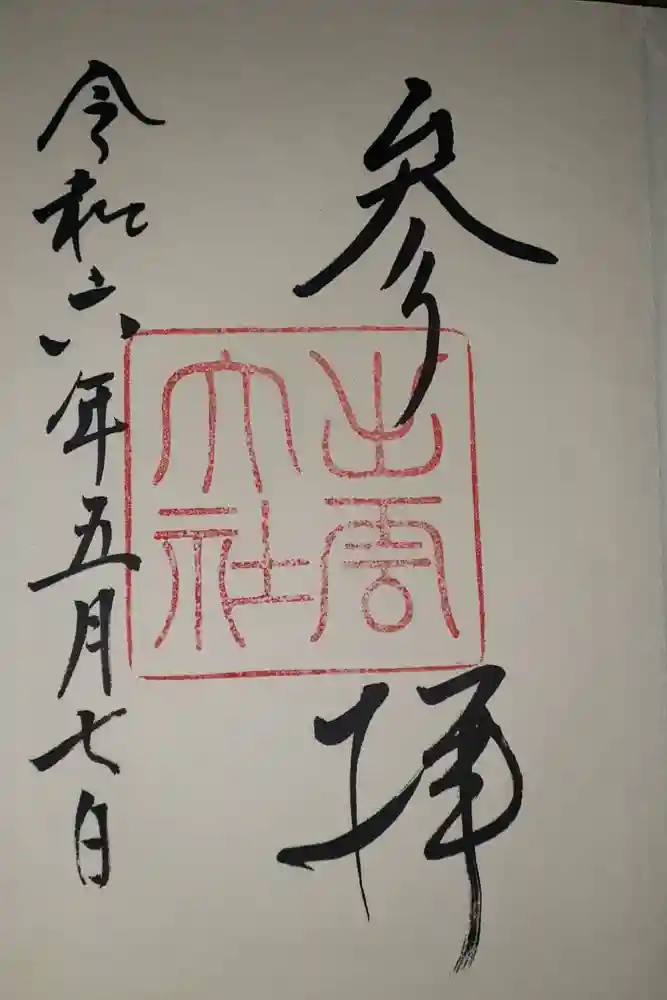 参拝
出雲大社
令和六年五月七日